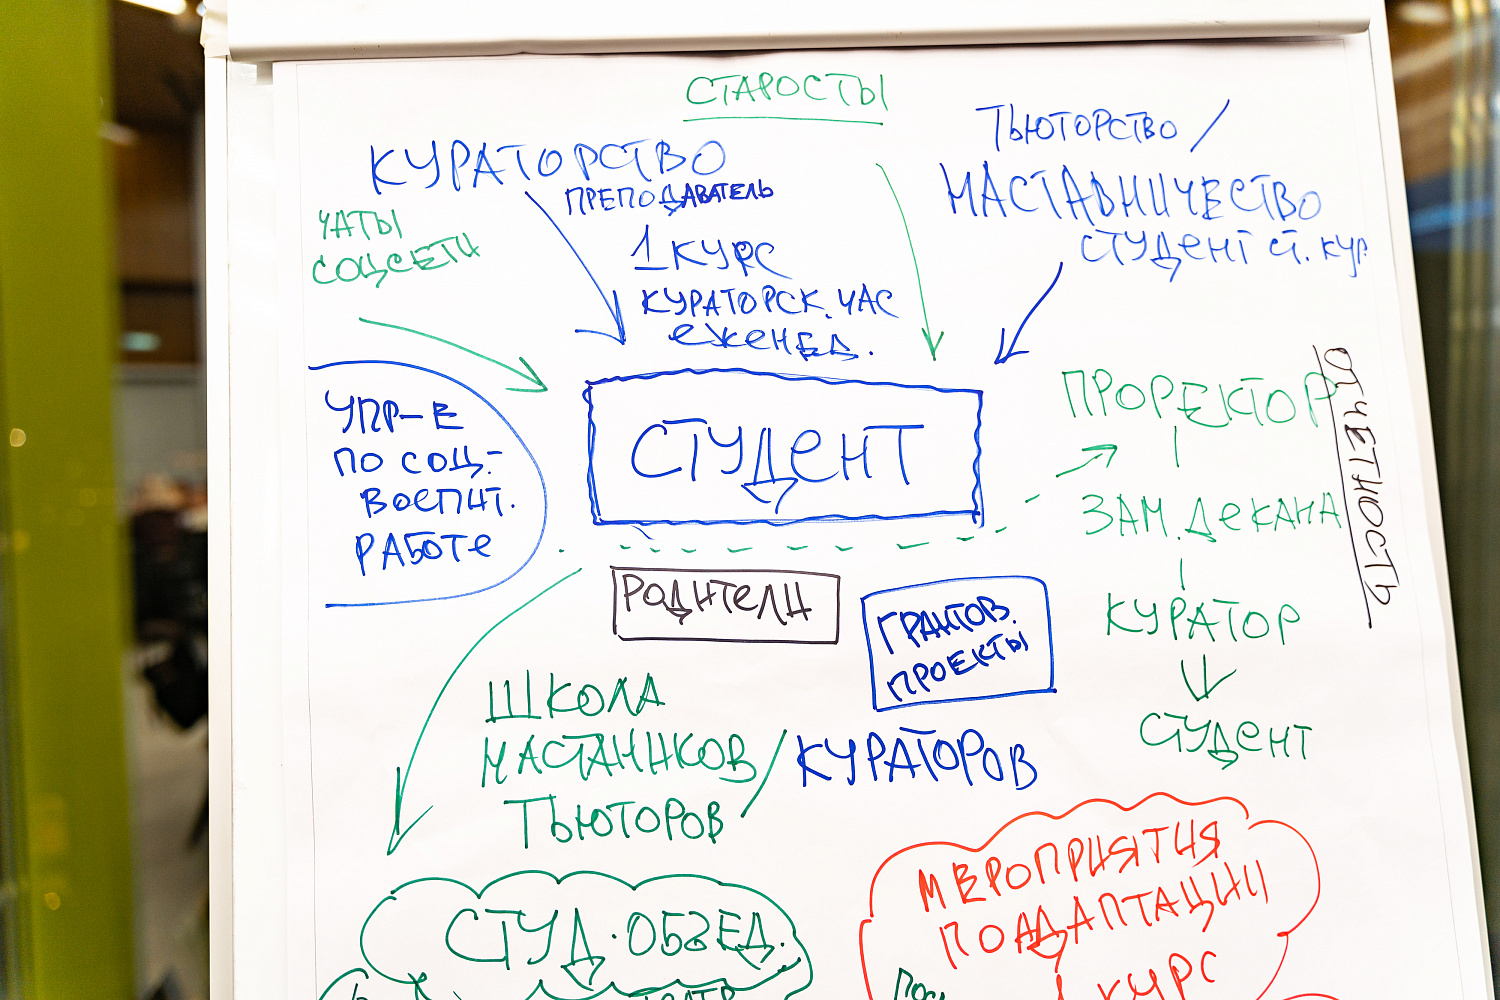 СТАРОСТЫ
КУРАТОРСТВО
ПРЕПОДАВАТЕЛЬ
1 КУРС
КУРАТОРСК. ЧАС
ЕЖЕНЕД.
ТЬЮТОРСТВО /
НАСТАВНИЧЕСТВО
СТУДЕНТ СТ. КУР.
ЧАТЫ
СОЦСЕТИ
УПР-Е
ПО СОЦ.-
ВОСПИТ.
РАБОТЕ
СТУДЕНТ
ПРОРЕКТОР
ЗАМ. ДЕКАНА
КУРАТОР
СТУДЕНТ
ОТЧЕТНОСТЬ
РОДИТЕЛИ
ГРАНТОВ.
ПРОЕКТЫ
ШКОЛА
НАСТАНИКОВ / КУРАТОРОВ
ТЬЮТОРОВ
СТУД. ОБЪЕД.
ТЕАТР
МЕРОПРИЯТИЯ
ПО АДАПТАЦИИ
1 КУРС